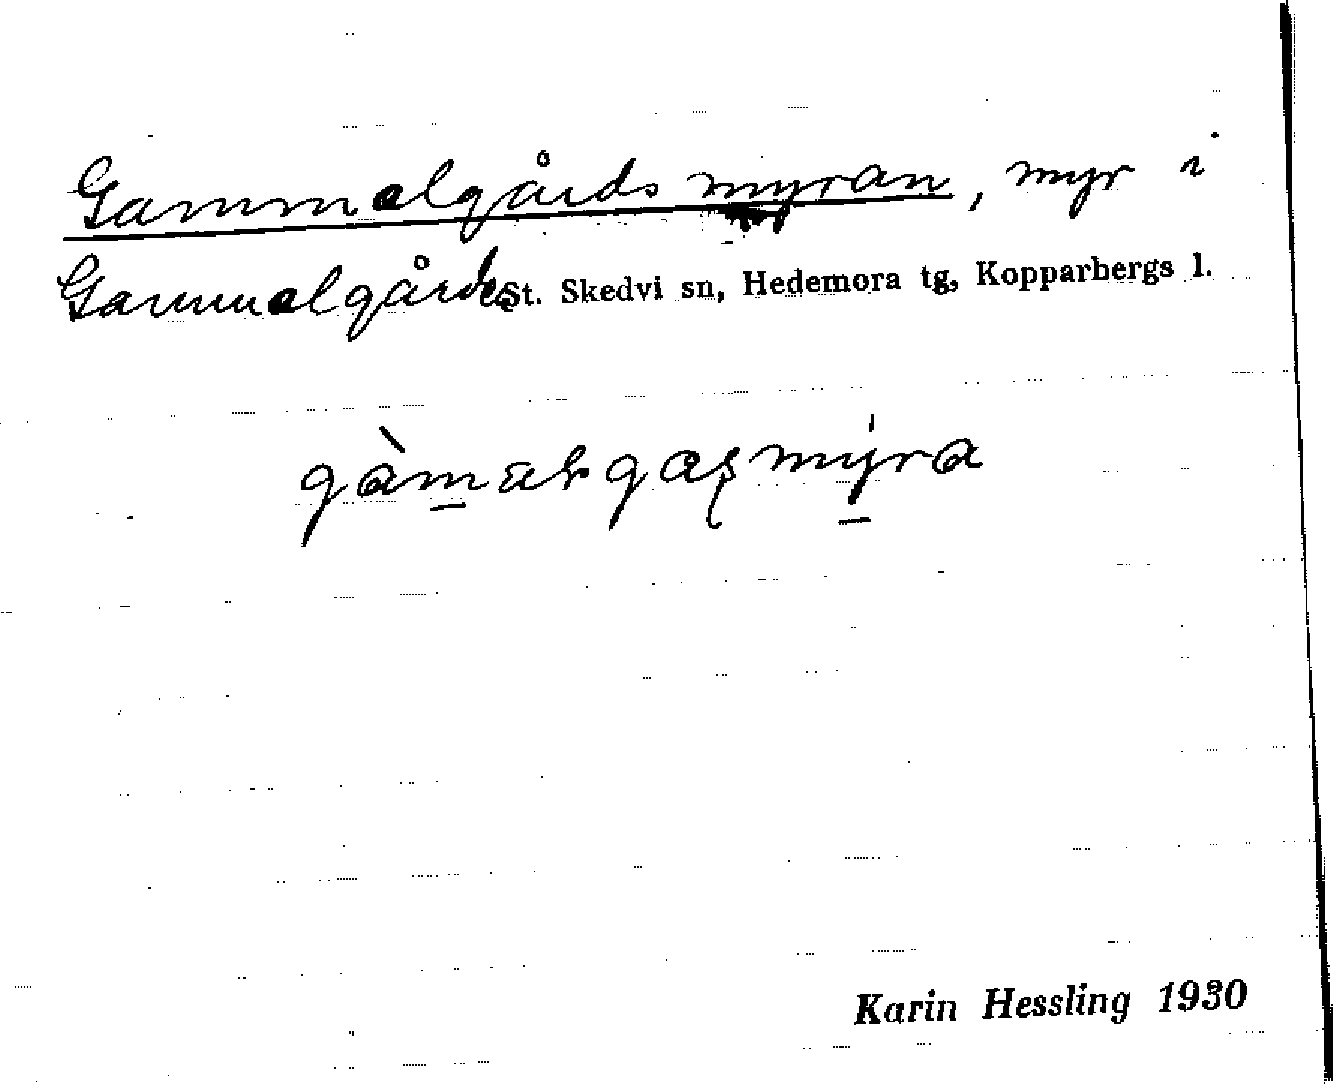 Gammelgårdsmyran, myr i
Gammelgårde St. Skedvi sn, Hedemora tg, Kopparbergs l.
Karin Hessling 1930